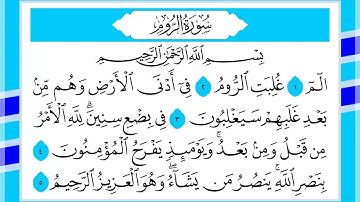 سُورَةُ الرُّومِ
بِسْمِ اللَّهِ الرَّحْمَٰنِ الرَّحِيمِ
الٓمٓ ١ غُلِبَتِ الرُّومُ ٢ فِىٓ أَدْنَى الْأَرْضِ وَهُم مِّنۢ
بَعْدِ غَلَبِهِمْ سَيَغْلِبُونَ ٣ فِى بِضْعِ سِنِينَ ۗ لِلَّهِ الْأَمْرُ
مِن قَبْلُ وَمِنۢ بَعْدُ ۚ وَيَوْمَئِذٍ يَفْرَحُ الْمُؤْمِنُونَ ٤
بِنَصْرِ اللَّهِ ۚ يَنصُرُ مَن يَشَآءُ ۖ وَهُوَ الْعَزِيزُ الرَّحِيمُ ٥